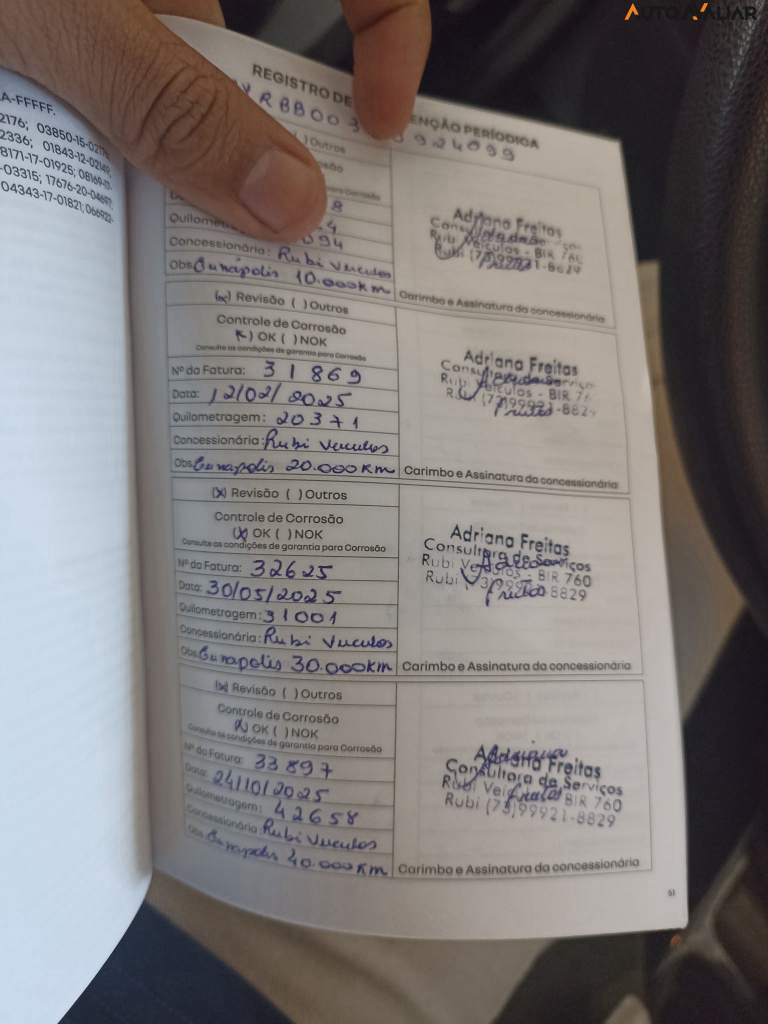 AUTOAVALIAR
A-FFFFF.
2176; 03850-15-02176;
2336; 01843-12-02149;
8171-17-01925; 08169-17-
-03315; 17676-20-04697;
04343-17-01821; 066922-
REGISTRO DE ENÇÃO PERÍODICA
RBB003 924099
( ) Outros
para Corrosão
8
Quilomet 094
Concessionária: Rubi Veiculos
Obs Eunápolis 10.000km
Adriana Freitas
Rubi Veículos - BIR 760
Rubi (73)99921-8829
Carimbo e Assinatura da concessionária
(x) Revisão ( ) Outros
Controle de Corrosão
(x) OK ( ) NOK
Consulte as condições de garantia para Corrosão
Nº da Fatura: 31869
Data: 12/02/2025
Quilometragem: 20371
Concessionária: Rubi Veiculos
Obs Eunapolis 20.000km
Adriana Freitas
Rubi Veículos - BIR 76
(73)99921-8829
Carimbo e Assinatura da concessionária
(x) Revisão ( ) Outros
Controle de Corrosão
(x) OK ( ) NOK
Consulte as condições de garantia para Corrosão
Nº da Fatura: 32625
Data: 30/05/2025
Quilometragem: 31001
Concessionária: Rubi Veiculos
Obs Eunapolis 30.000km
Adriana Freitas
Consultora de Serviços
Rubi Veículos - BIR 760
Rubi (73)99921-8829
Carimbo e Assinatura da concessionária
(x) Revisão ( ) Outros
Controle de Corrosão
(x) OK ( ) NOK
Consulte as condições de garantia para Corrosão
Nº da Fatura: 33897
Data: 24/10/2025
Quilometragem: 42658
Concessionária: Rubi Veiculos
Obs Eunapolis 40.000km
Adriana Freitas
Consultora de Serviços
Rubi Veículos BIR 760
Rubi (73)99921-8829
Carimbo e Assinatura da concessionária
51